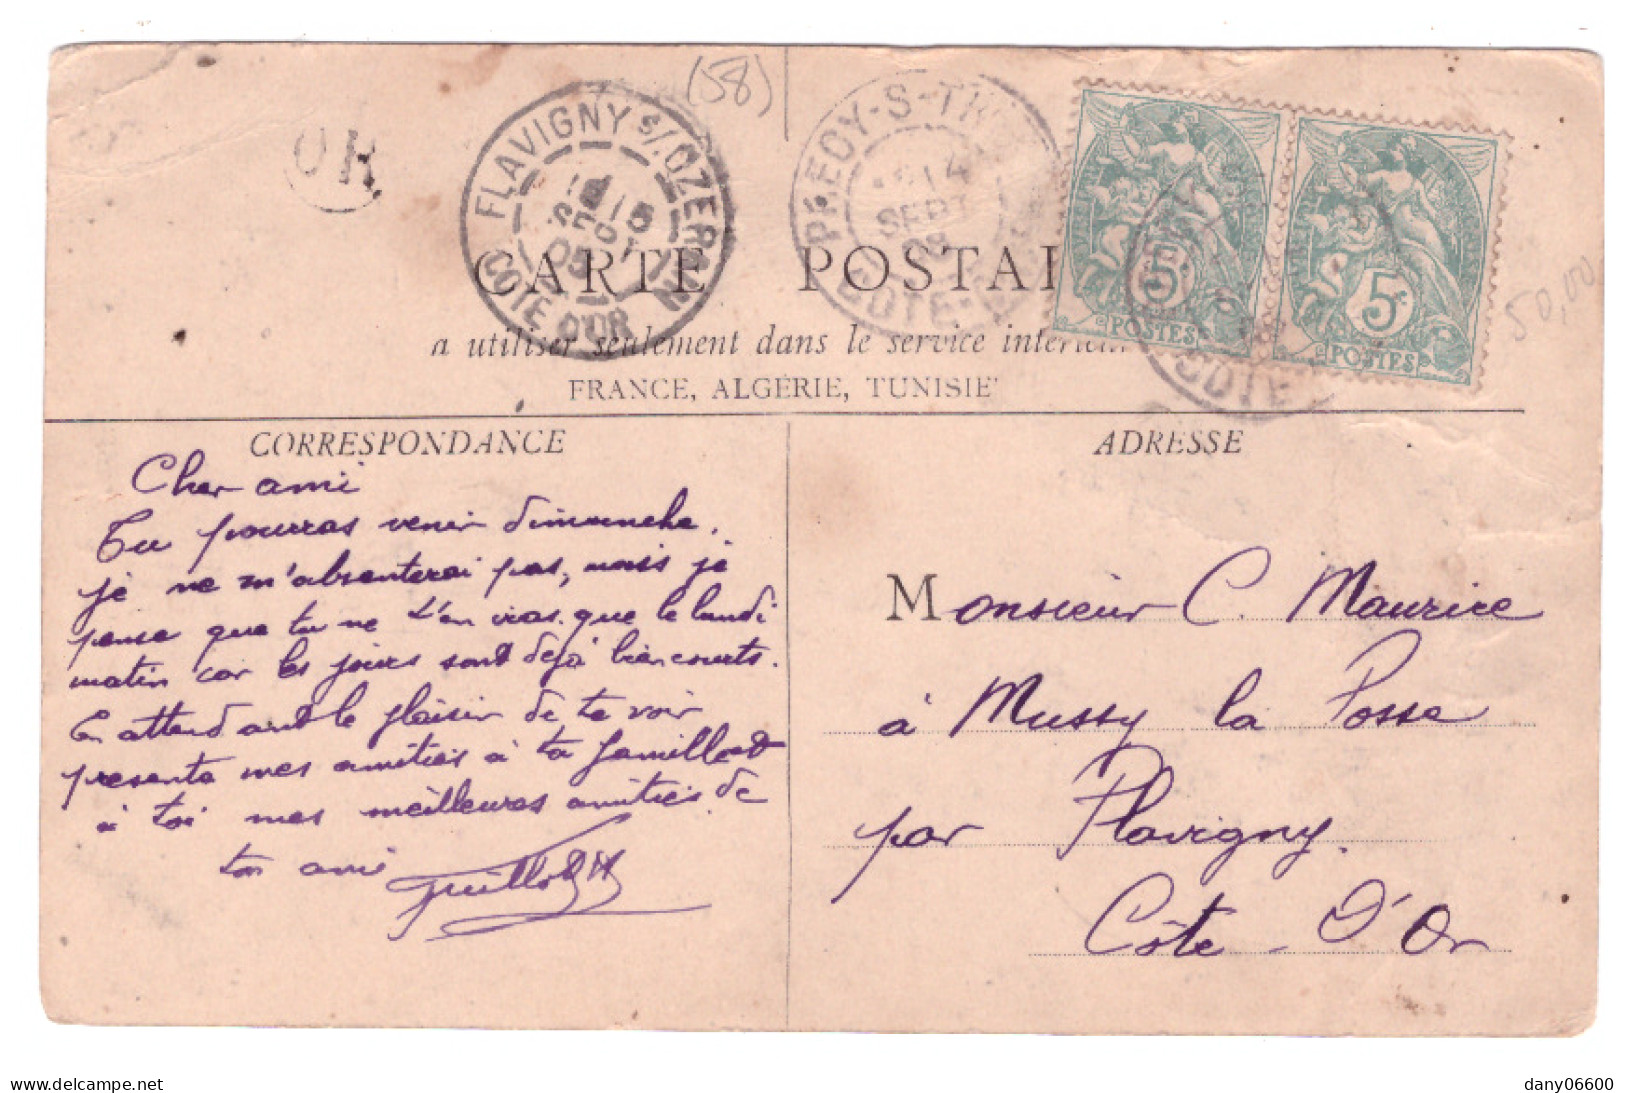 (58)
OR
FLAVIGNY S/ OZERAIN
15
SEPT
05
COTE D'OR
PRECY-S-TH
14
SEPT
COTE-
5c
POSTES
5c
POSTES
COTE
50,00
CARTE POSTAL
a utiliser seulement dans le service interieur
FRANCE, ALGÉRIE, TUNISIE
CORRESPONDANCE
Cher ami
Tu pourras venir dimanche.
je ne m'absenterai pas, mais je
pense que tu ne t'en iras que le lundi
matin car les jours sont déjà bien courts.
En attendant le plaisir de te voir
presente mes amitiés à ta famille et
à toi mes meilleures amitiés de
ton ami Guillot
ADRESSE
Monsieur C. Maurice
à Mussy la Fosse
par Flavigny.
Côte-d'Or
www.delcampe.net
dany06600